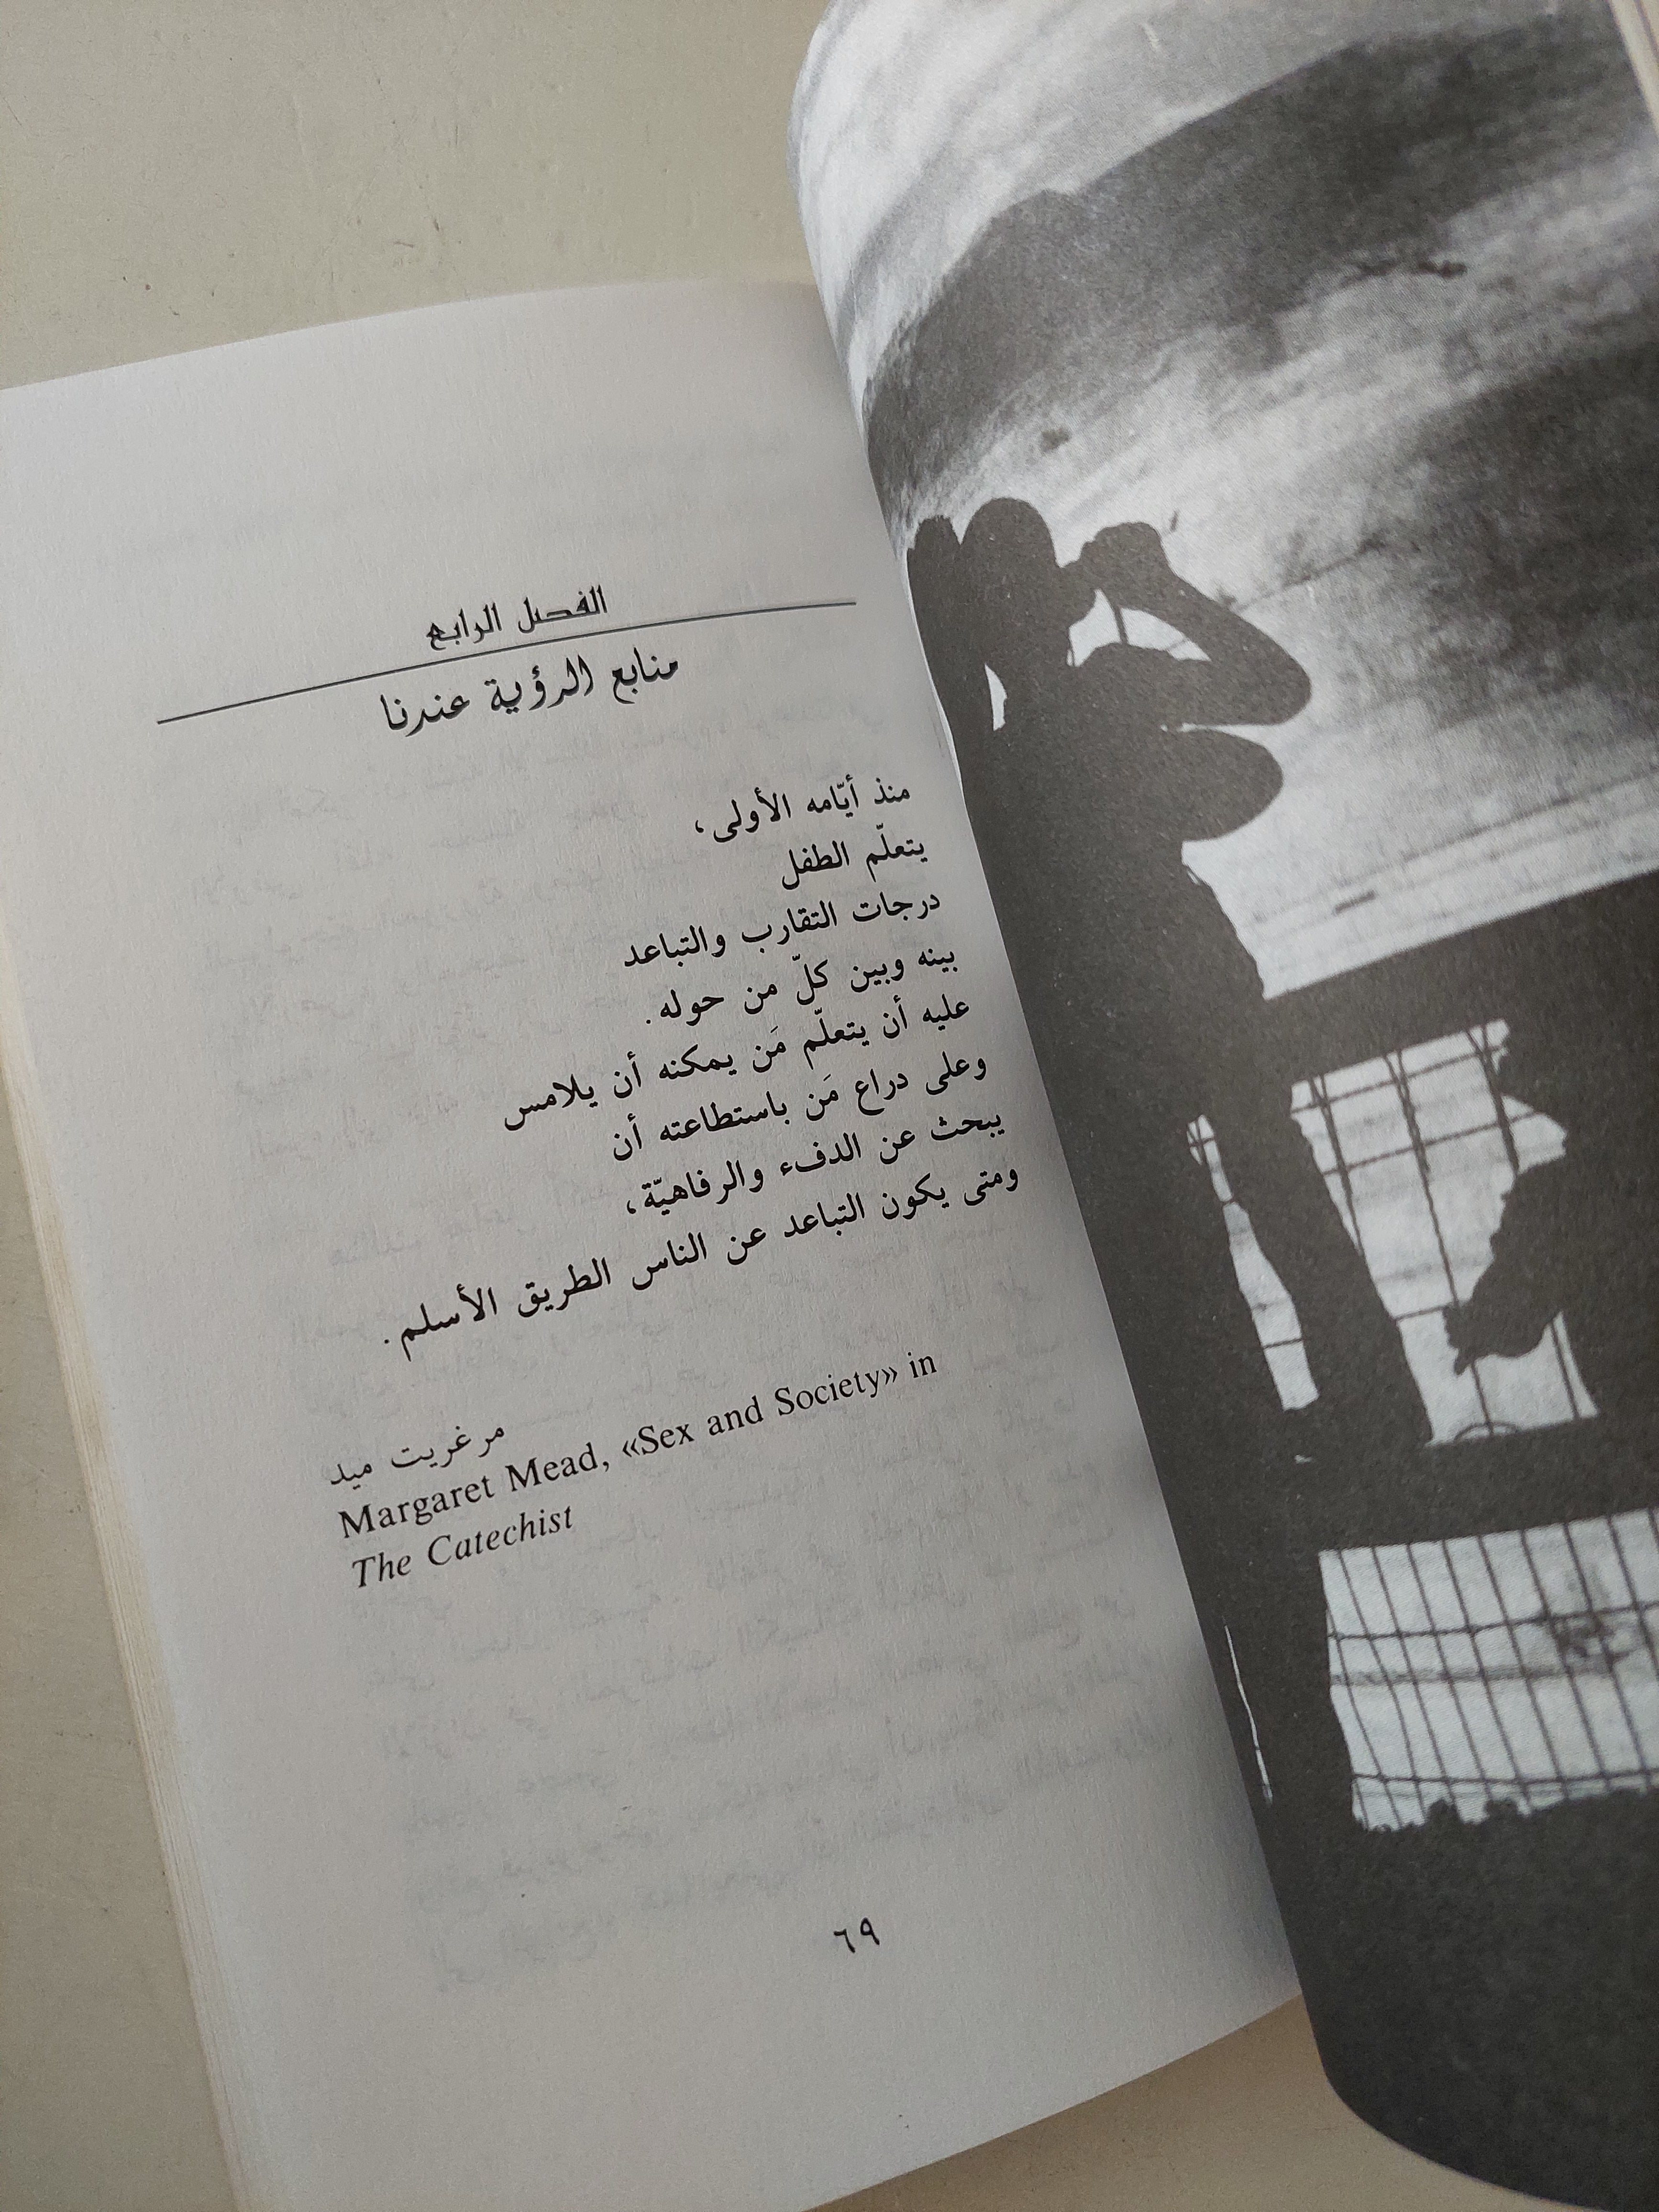 الفصل الرابع
منابع الرؤية عندنا
منذ أيّامه الأولى،
يتعلّم الطفل
درجات التقارب والتباعد
بينه وبين كلّ من حوله.
عليه أن يتعلّم مَن يمكنه أن يلامس
وعلى دراع مَن باستطاعته أن
يبحث عن الدفء والرفاهيّة،
ومتى يكون التباعد عن الناس الطريق الأسلم.
مرغريت ميد
Margaret Mead, «Sex and Society» in
The Catechist
٦٩